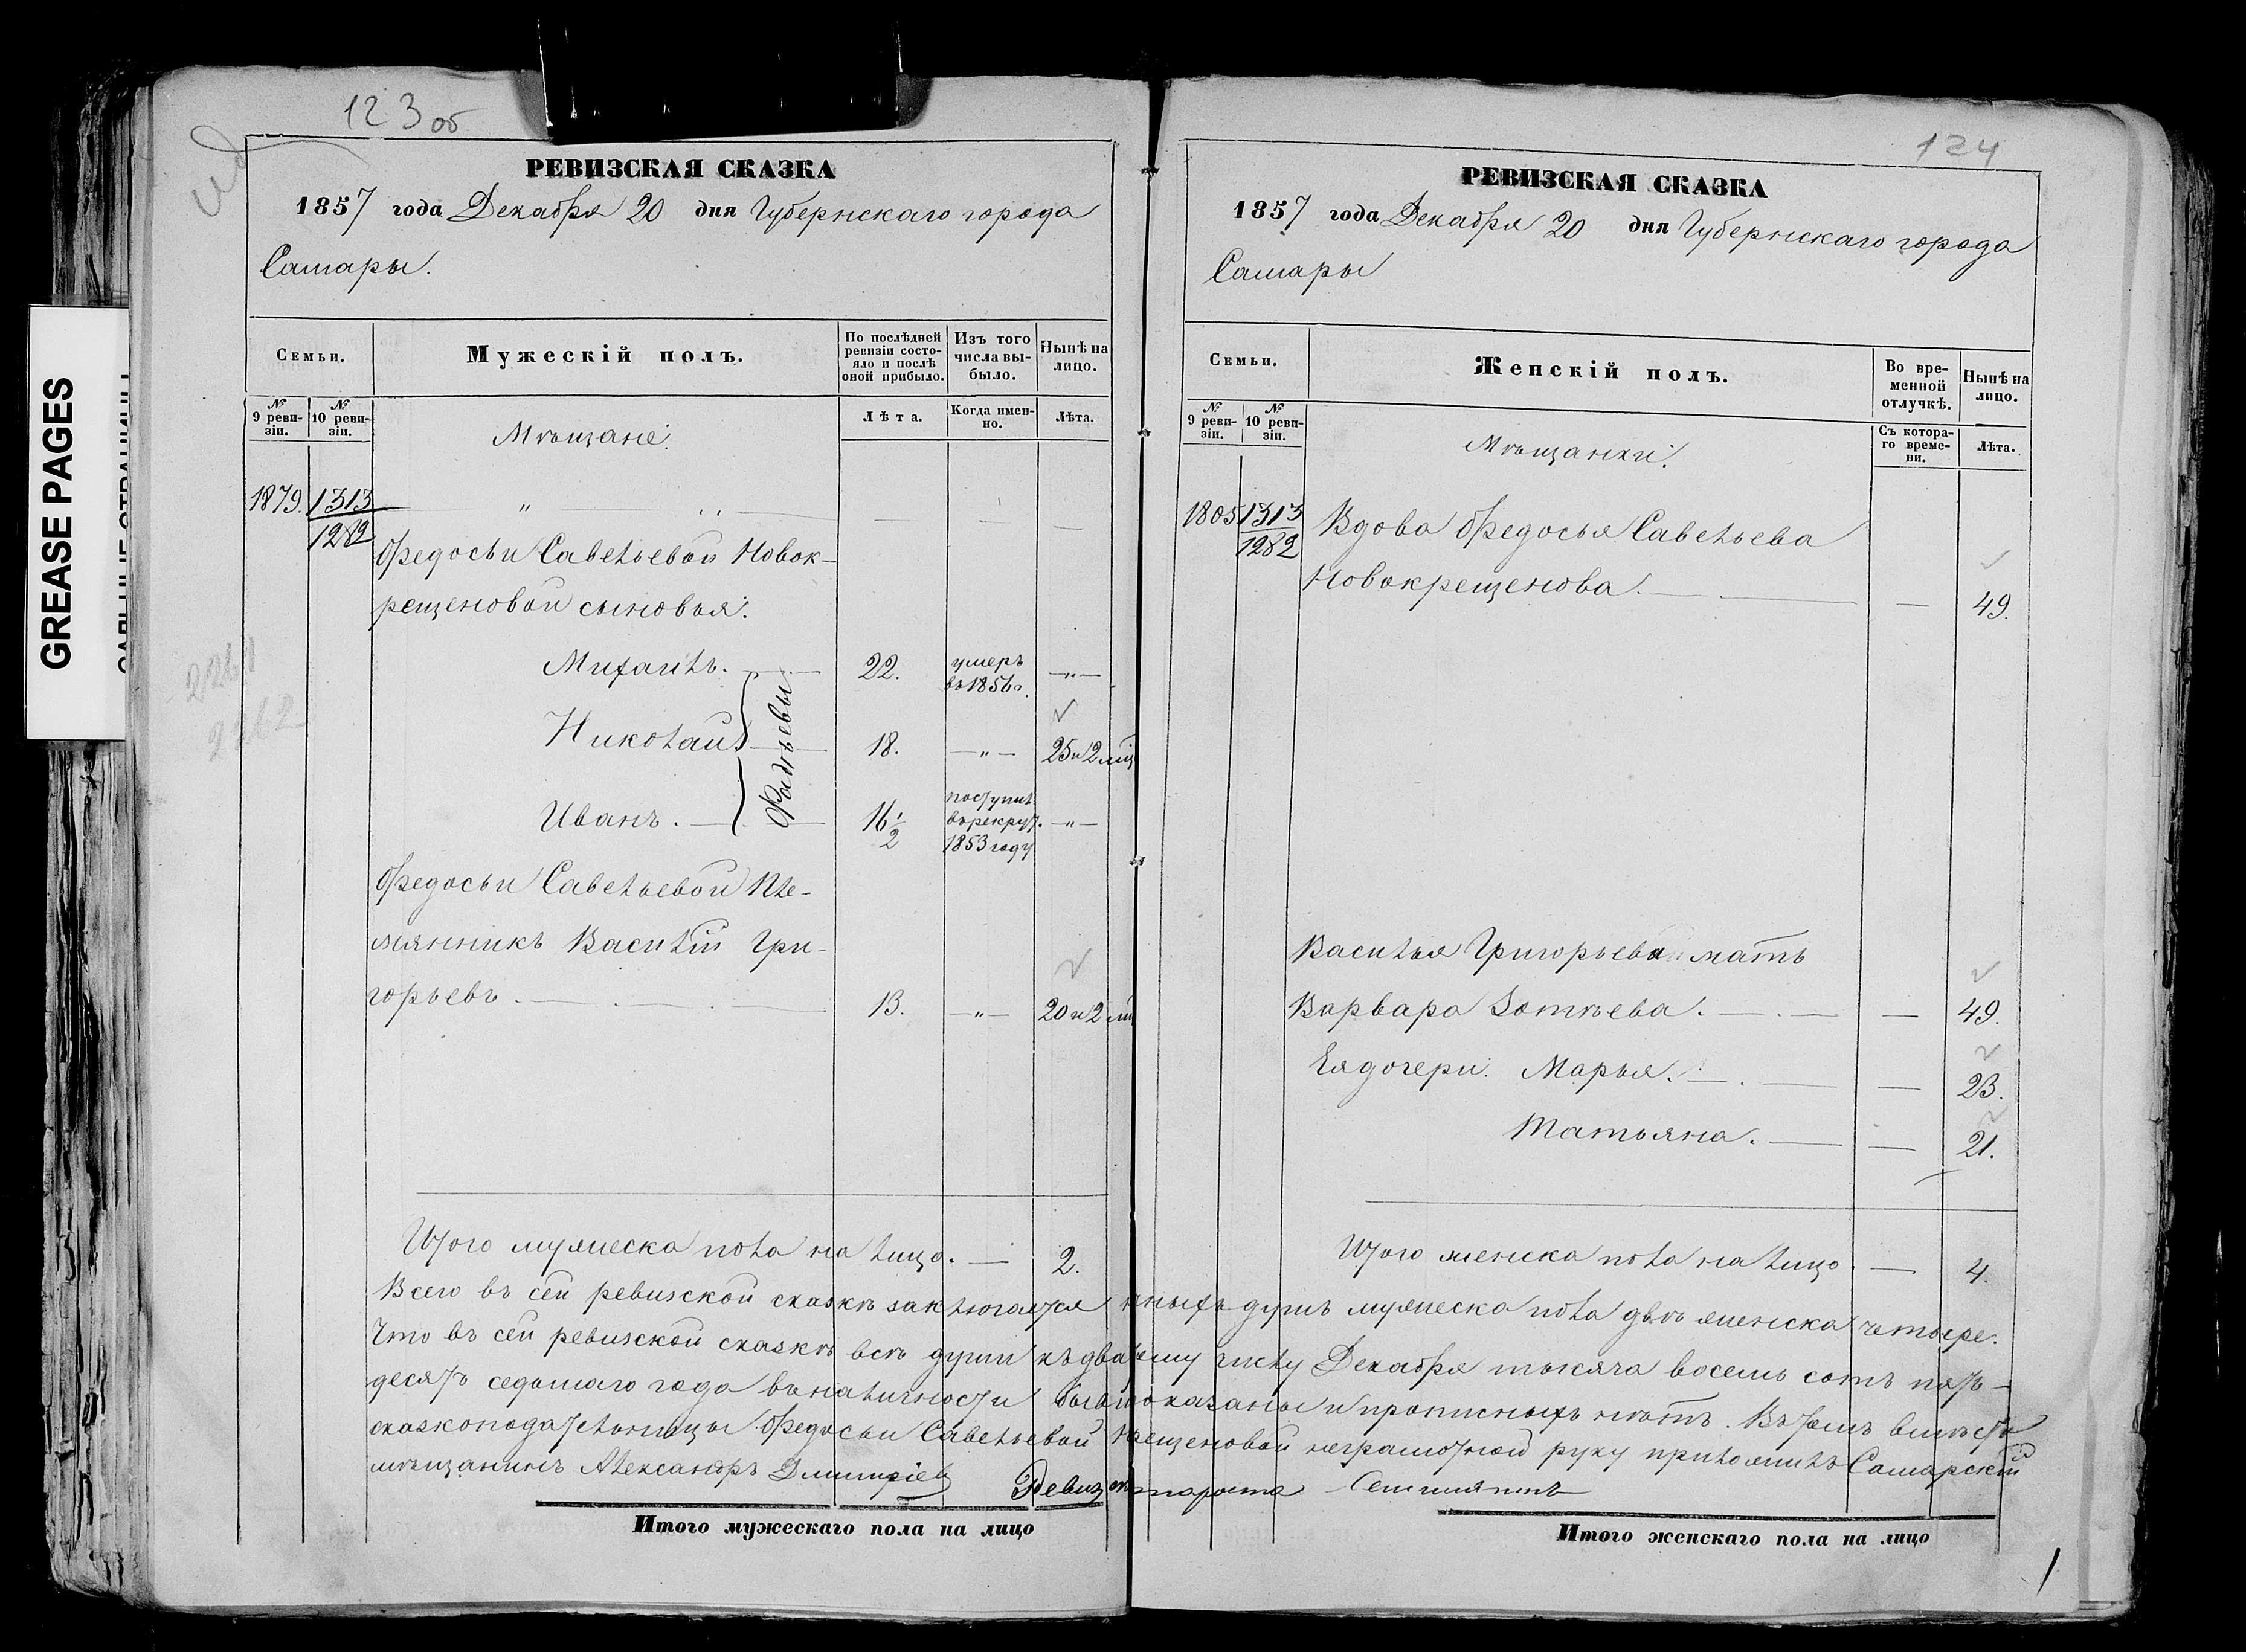 123 об
РЕВИЗСКАЯ СКАЗКА
1857 года Декабря 20 дня Губернскаго города
Самары.
Семьи.
Мужескій полъ.
По послѣдней ревизіи состояло и послѣ оной прибыло.
Изъ того числа выбыло.
Нынѣ на лицо.
№ 9 ревизіи.
№ 10 ревизіи.
Мѣщане.
Лѣта.
Когда именно.
Лѣта.
1879. 1313 „ „
1282
Федосьи Савельевой Новок-
рещеновой сыновья.
Михаилъ. 22. умеръ въ 1856 г. „
Николай 18. „ 25 и 2 мѣц
Фадѣевы
Иванъ. 16 1/2 поступилъ въ рекрут. 1853 году „
Федосьи Савельевой пле-
мянникъ Василій Гри-
горьевъ. 13. „ 20 и 2 мц
Итого мужеска пола на лицо. 2.
GREASE PAGES
124
РЕВИЗСКАЯ СКАЗКА
1857 года Декабря 20 дня Губернскаго города
Самары
Семьи.
Женскій полъ.
Во временной отлучкѣ.
Нынѣ на лицо.
№ 9 ревизіи.
№ 10 ревизіи.
Мѣщанки.
Съ котораго времени.
Лѣта.
1805 1313 Вдова Федосья Савельева
1282
Новокрещенова. 49.
Василья Григорьева мать
Варвара Зотѣева. 49.
Ея дочери. Марья. 23.
Татьяна. 21.
Итого женска пола на лицо 4.
Всего въ сей ревизской сказкѣ заключается ныхъ душъ мужеска пола двѣ женска четыре.
Что въ сей ревизской сказкѣ всѣ души къ два ему числу Декабря тысяча восемь сотъ пять-
десятъ седьмаго года въ наличности бывш показаны и прописныхъ нѣтъ. Въ томъ вмѣсто
сказкоподательницы Федосьи Савельевой щеновой неграмотной руку приложилъ Самарскій
мѣщанинъ Александръ Дмитріев
Ревиз староста
Итого мужескаго пола на лицо
Итого женскаго пола на лицо